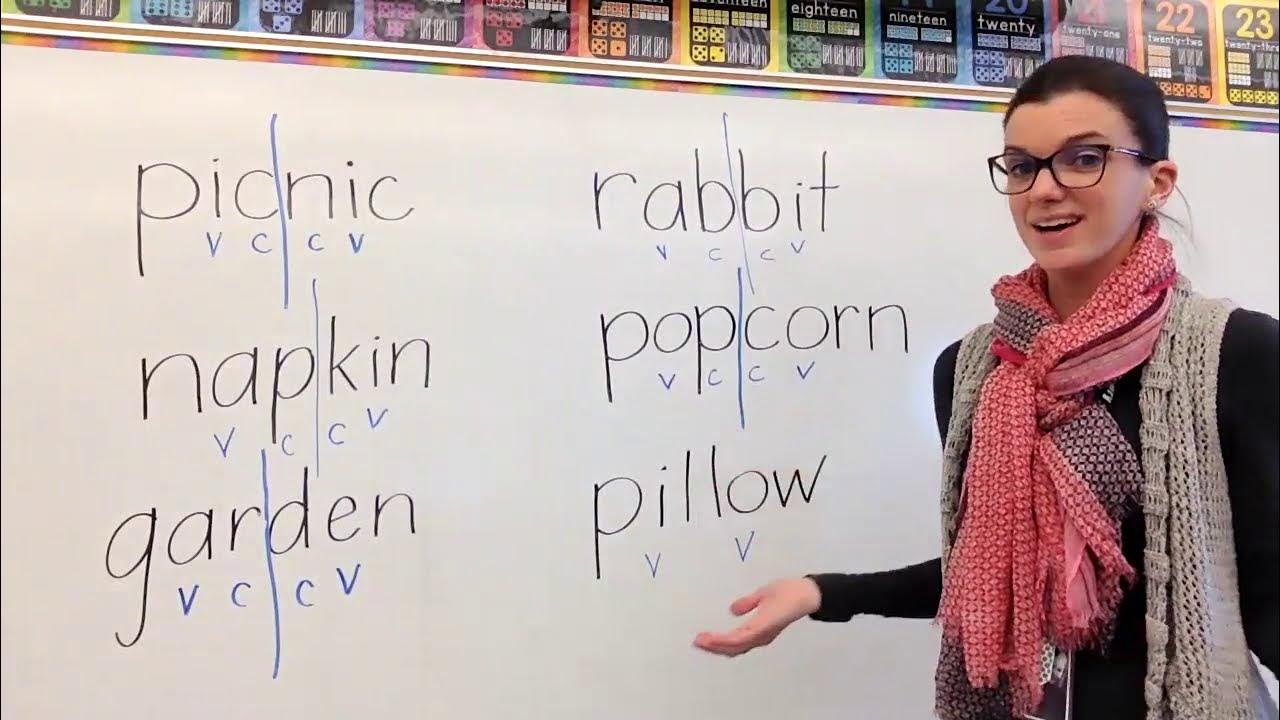 eighteen
nineteen
20
twenty
21
twenty-one
22
twenty-two
23
picnic
V C C V
rabbit
V C C V
napkin
V C C V
popcorn
V C C V
garden
V C C V
pillow
V V